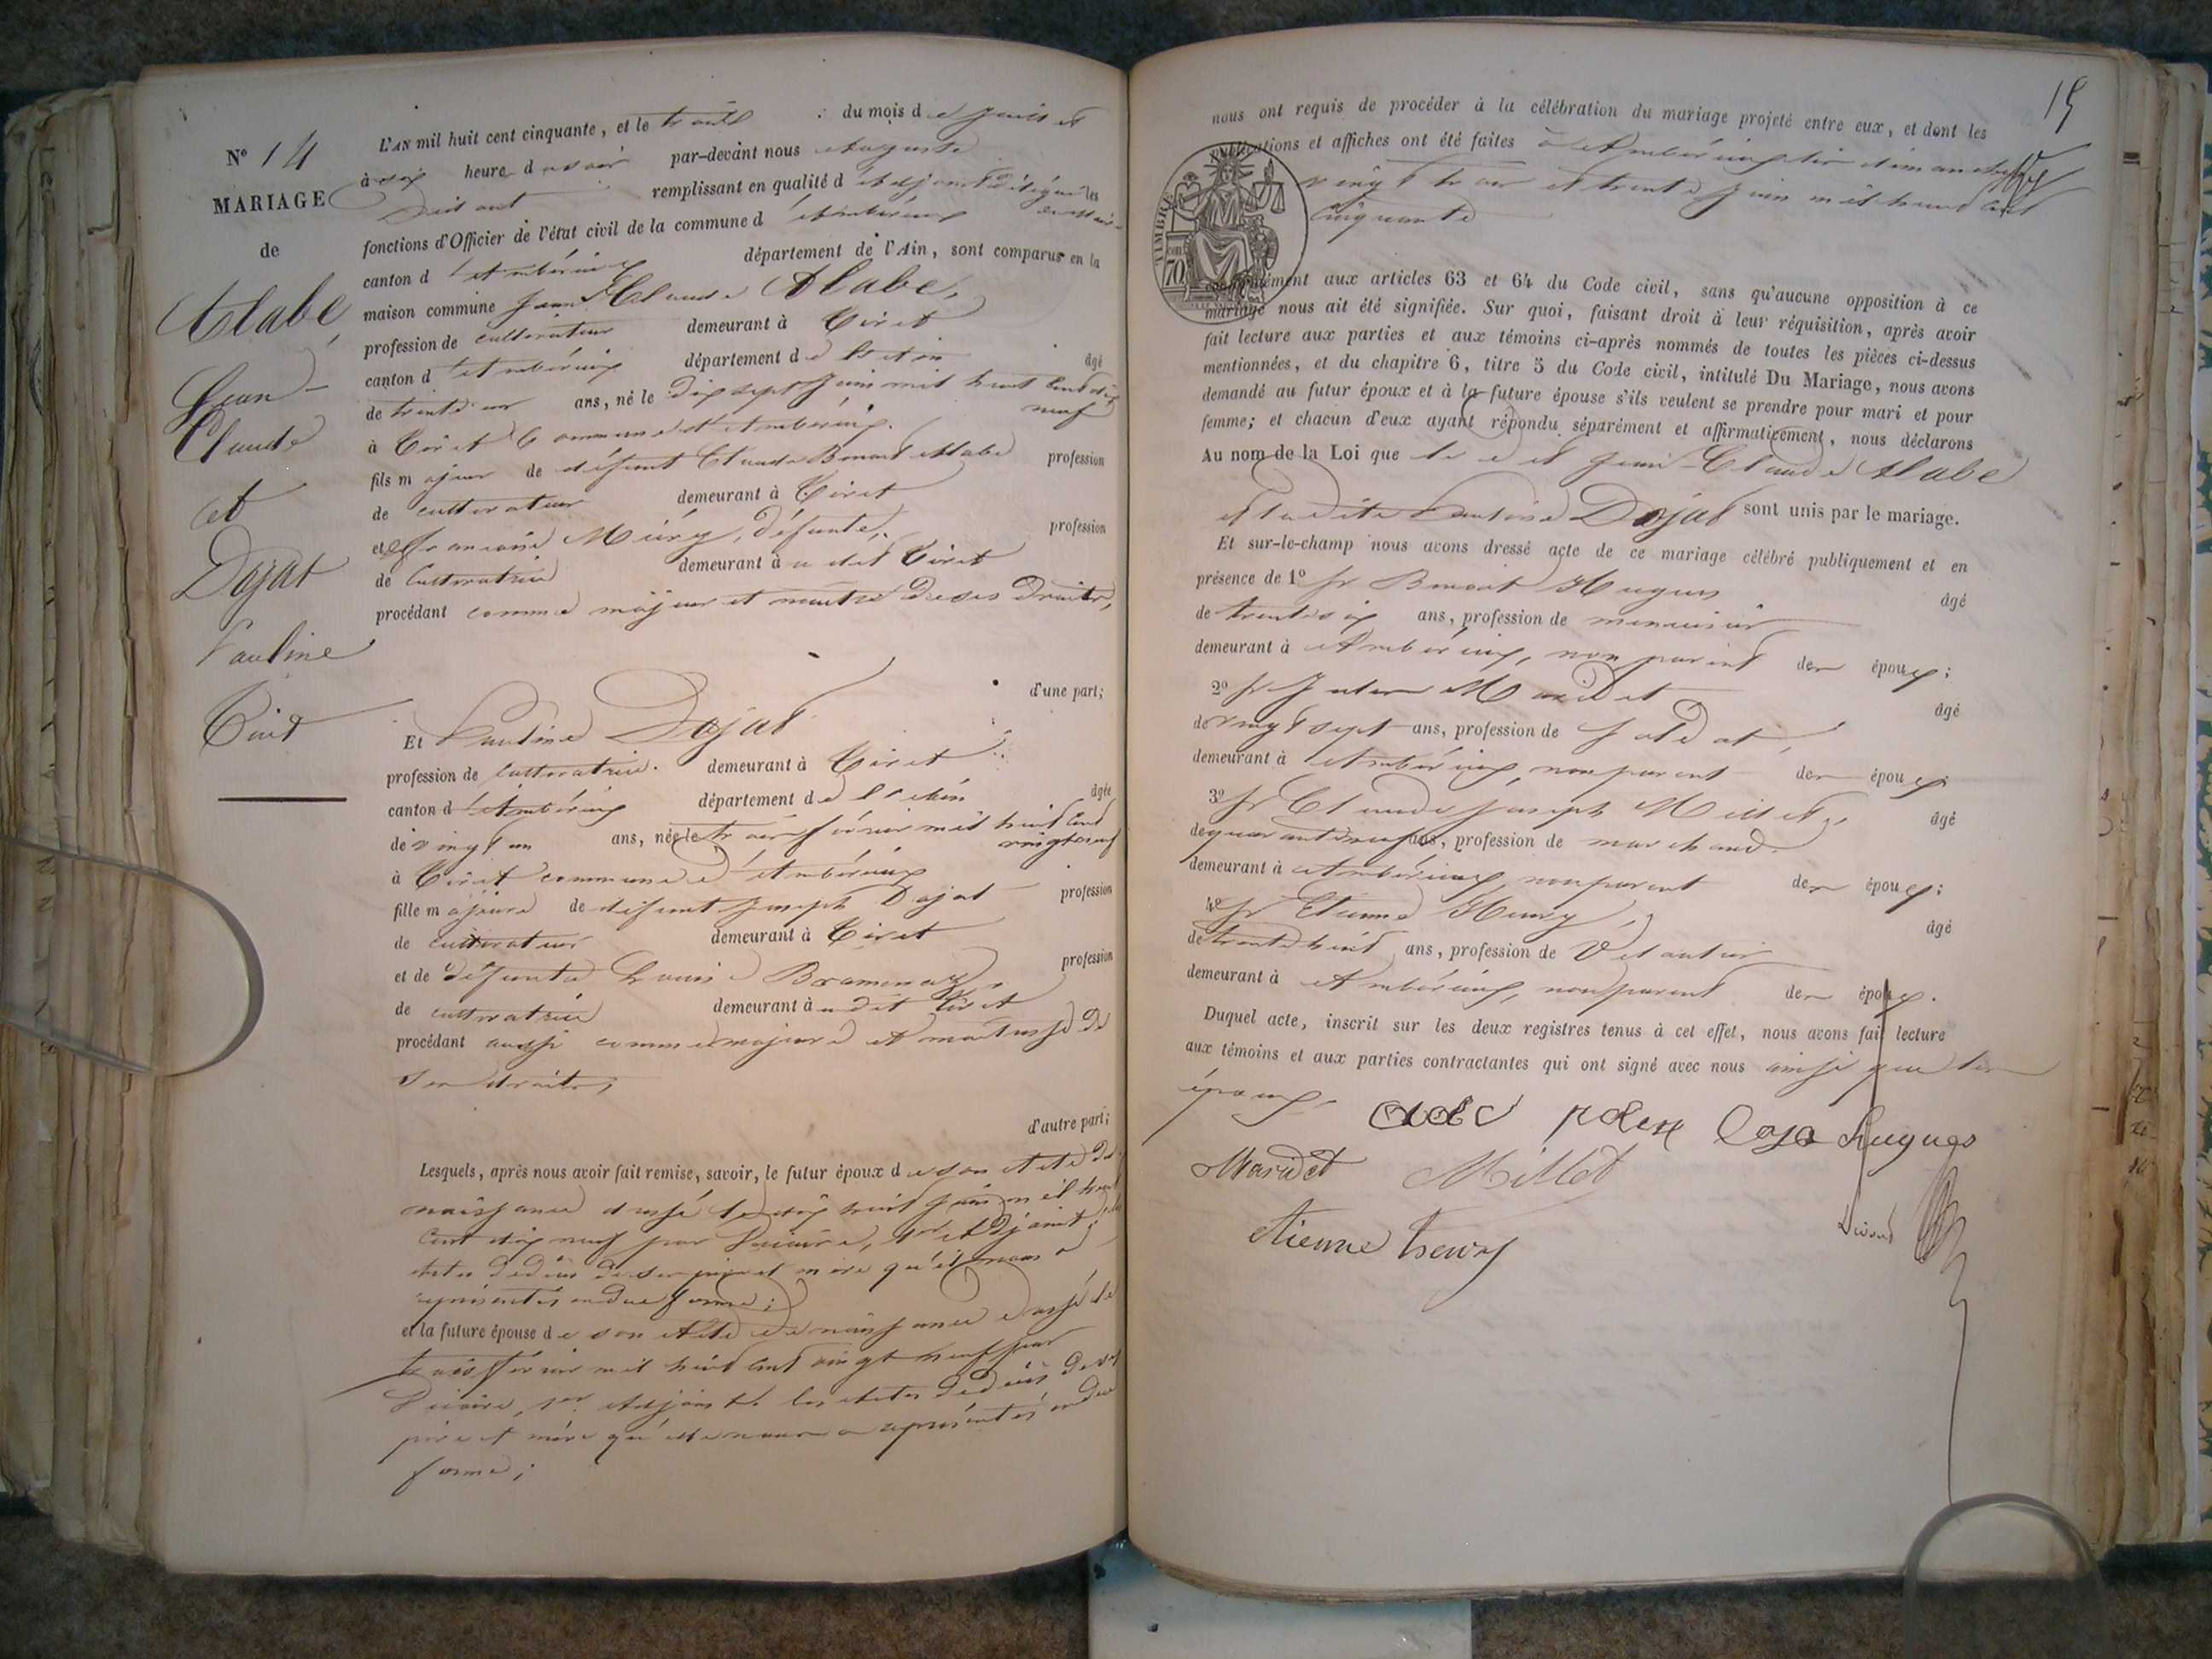 N° 14
MARIAGE
de
Alabe,
Jean-
Claude
et
Dojat
Pauline
Tiret
L'AN mil huit cent cinquante, et le trente du mois de juin et
à six heure du soir par-devant nous Auguste
remplissant en qualité d'Adjoint délégué les
fonctions d'Officier de l'état civil de la commune d'Ambérieux
canton d'Ambérieux département de l'Ain, sont comparus en la
maison commune Jean-Claude Alabe,
profession de cultivateur demeurant à Tiret
canton d'Ambérieux département de l'Ain âgé
de trente un ans, né le dix sept juin mil huit cent dix
neuf
à Tiret Commune d'Ambérieux.
fils majeur de défunt Claude Benoit Alabe profession
de cultivateur demeurant à Tiret
et Françoise défunte, profession
de Cultivatrice demeurant à u dit Tiret
procédant comme majeur et maître de ses droits,
d'une part;
Et Pauline Dojat
profession de Cultivatrice. demeurant à Tiret
canton d'Ambérieux département de l'Ain âgée
de vingt un ans, née le trois février mil huit cent
vingt neuf
à Tiret commune d'Ambérieux
fille majeure de défunt Joseph Dojat profession
de cultivateur demeurant à Tiret
et de défunte Louise profession
de cultivatrice demeurant à u dit Tiret
procédant aussi comme majeure et maîtresse de
ses droits;
d'autre part;
Lesquels, après nous avoir fait remise, savoir, le futur époux de son Acte de
naissance dressé le dix huit juin mil huit
cent dix neuf par 1er Adjoint; les
Actes de décès de ses père et mère qu'il nous a
représentés en due forme;
et la future épouse de son Acte de naissance dressé le
trois février mil huit cent vingt neuf par
1er Adjoint. les Actes de décès de ses
père et mère qu'elle nous a représentés en due
forme;
15
nous ont requis de procéder à la célébration du mariage projeté entre eux, et dont les
publications et affiches ont été faites à Ambérieux les dimanches
vingt trois et trente juin mil huit cent
cinquante
TIMBRE
70
conformément aux articles 63 et 64 du Code civil, sans qu'aucune opposition à ce
mariage nous ait été signifiée. Sur quoi, faisant droit à leur réquisition, après avoir
fait lecture aux parties et aux témoins ci-après nommés de toutes les pièces ci-dessus
mentionnées, et du chapitre 6, titre 5 du Code civil, intitulé Du Mariage, nous avons
demandé au futur époux et à la future épouse s'ils veulent se prendre pour mari et pour
femme; et chacun d'eux ayant répondu séparément et affirmativement, nous déclarons
Au nom de la Loi que le dit Jean-Claude Alabe
et la dite Pauline Dojat sont unis par le mariage.
Et sur-le-champ nous avons dressé acte de ce mariage célébré publiquement et en
présence de 1° Sr Benoit Hugues âgé
de trente six ans, profession de menuisier
demeurant à Ambérieux, non parent des époux;
2° Sr Maridet âgé
de vingt sept ans, profession de soldat,
demeurant à Ambérieux, non parent des époux;
3° Sr Claude Joseph Millet, âgé
de quarante neuf ans, profession de marchand
demeurant à Ambérieux, non parent des époux;
4° Sr Etienne Henry, âgé
de trente huit ans, profession de
demeurant à Ambérieux, non parent des époux.
Duquel acte, inscrit sur les deux registres tenus à cet effet, nous avons fait lecture
aux témoins et aux parties contractantes qui ont signé avec nous ainsi que les
époux.
hugues
Maridet Millet
Etienne henry